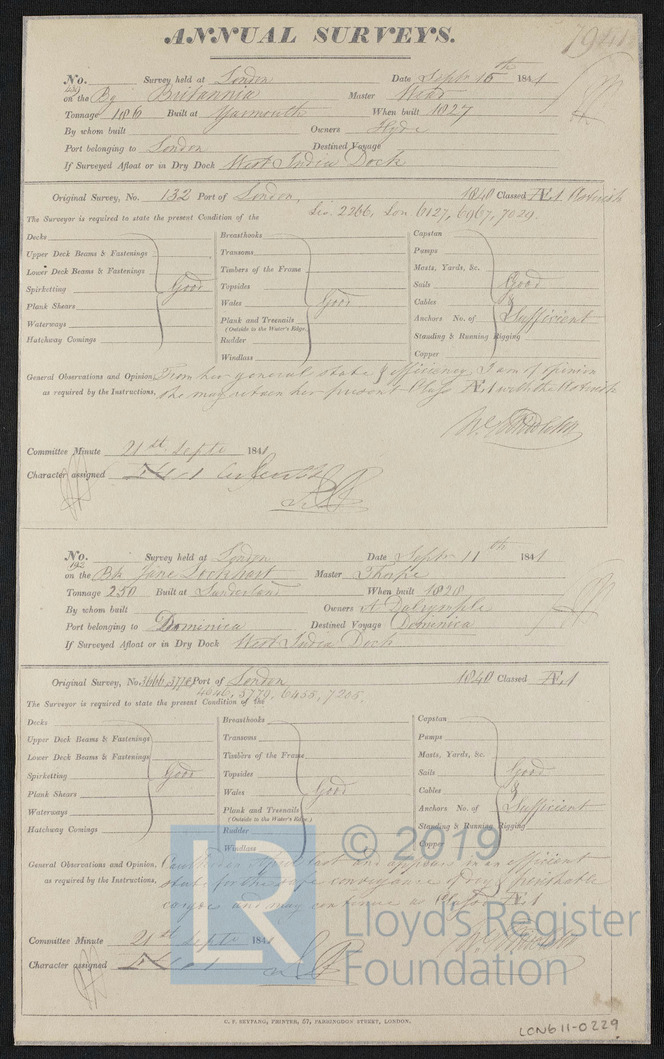 ANNUAL SURVEYS.
7941
No. Survey held at London Date Septr 16th 1841
on the Bg Britannia Master West
Tonnage 186 Built at Yarmouth When built 1827
By whom built Owners Hyde
Port belonging to London Destined Voyage
If Surveyed Afloat or in Dry Dock West India Dock
Original Survey, No. 132 Port of London, 1840 Classed Æ1
2266, Lon 6127, 6967, 7029.
The Surveyor is required to state the present Condition of the
Decks Breasthooks Capstan
Upper Deck Beams & Fastenings Transoms Pumps
Lower Deck Beams & Fastenings Timbers of the Frame Masts, Yards, &c.
Spirketting Good Topsides Sails Good
Plank Shears Wales Good Cables &
Waterways Plank and Treenails Anchors No. of Sufficient
(Outside to the Water's Edge.)
Hatchway Comings Rudder Standing & Running Rigging
Windlass Copper
General Observations and Opinion, From her general state & efficiency I am of opinion
as required by the Instructions, she may retain her present Class Æ1 with the
Committee Minute 21st Septr 1841
Character assigned
No. 192 Survey held at London Date Septr 11th 1841
on the Bk Jane Lockhart Master Thorpe
Tonnage 250 Built at Sunderland When built 1828
By whom built Owners A Dalrymple
Port belonging to Dominica Destined Voyage Dominica
If Surveyed Afloat or in Dry Dock West India Dock
Original Survey, No. 3666, 3778, Port of London 1840 Classed Æ1
4646, 5779, 6455, 7205.
The Surveyor is required to state the present Condition of the
Decks Breasthooks Capstan
Upper Deck Beams & Fastenings Transoms Pumps
Lower Deck Beams & Fastenings Timbers of the Frame Masts, Yards, &c.
Spirketting Good Topsides Sails Good
Plank Shears Wales Good Cables &
Waterways Plank and Treenails Anchors No. of Sufficient
(Outside to the Water's Edge.)
Hatchway Comings Rudder Standing & Running Rigging
Windlass Copper
General Observations and Opinion, and appears in an efficient
as required by the Instructions, state for the safe conveyance of dry & perishable
cargoes and may continue as Classed Æ1
Committee Minute 21st Septr 1841
Character assigned
LR
© 2019
Lloyd's Register
Foundation
C. F. SEYFANG, PRINTER, 57, FARRINGDON STREET, LONDON.
LON611-0229